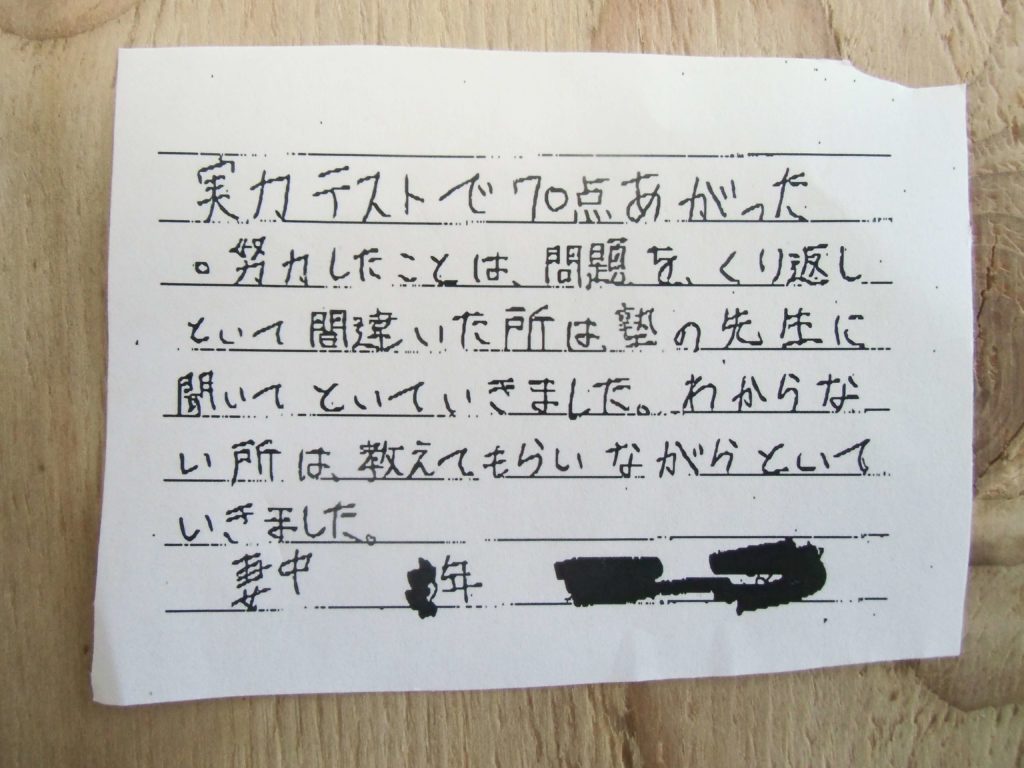 実力テストで70点あがった
。努力したことは、問題を、くり返し
といて間違いた所は塾の先生に
聞いてといていきました。わからな
い所は、教えてもらいながらといて
いきました。
妻中 年